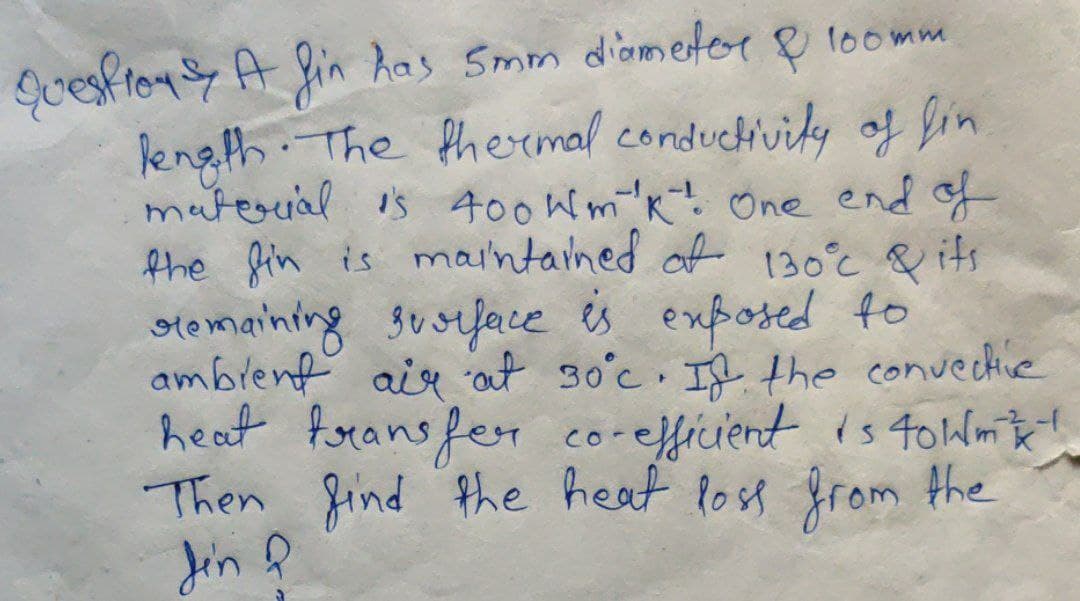 Question :- A fin has 5mm diameter & 100mm
length. The thermal conductivity of fin
material is 400 Wm⁻¹K⁻¹. One end of
the fin is maintained at 130°c & its
remaining surface is exposed to
ambient air at 30°c. If the convective
heat transfer co-efficient is 40Wm⁻²K⁻¹
Then find the heat loss from the
fin ?